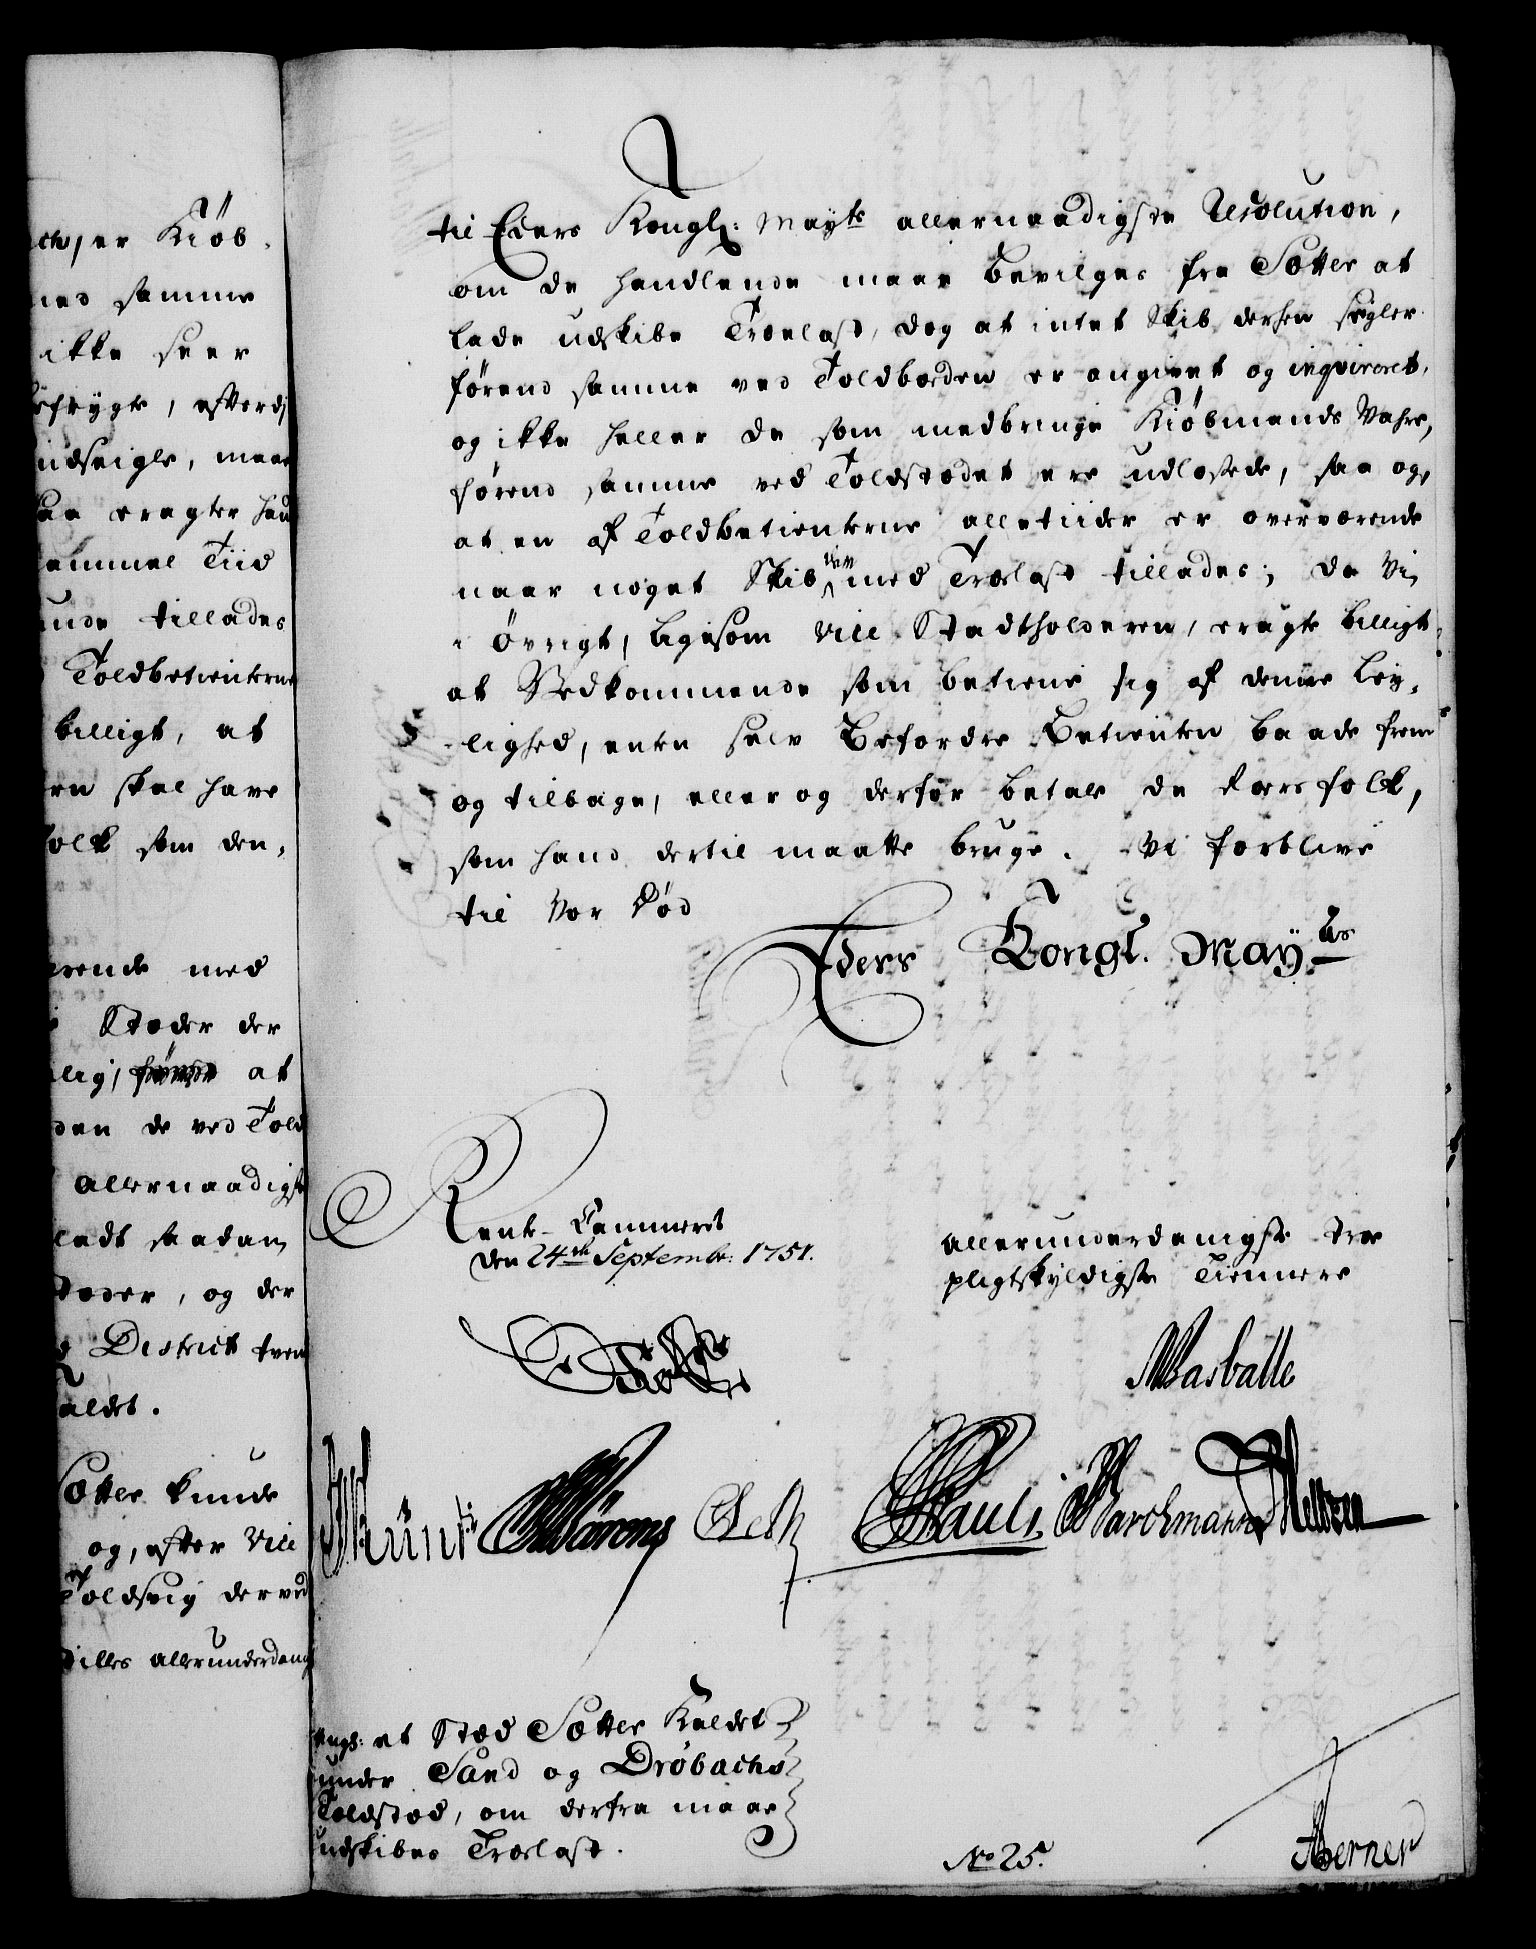 til Eders Kongl: Mayts allernaadigste Resolution,
om de handlende maae bevilges fra Sætter at
lade udskibe Trælast, dog at intet Skib derhen segler
førend samme ved Toldboeden er angivet og inqvireret,
og ikke heller de som medbringe Kiøbmands Vahre,
førend samme ved Toldstædet ere udlossede, saa og,
at en af Toldbetienterne alletiider er overværende
naar noget Skib med Trælast tillades; da Vi
i Øvrigt, ligesom Vice Stadtholderen, eragte billigt
at Vedkommende som betiene sig af denne Ley,
-lighed, enten selv befordre Betienten baade frem
og tilbage, eller og derfor betale de Roersfolk,
som hand dertil maatte bruge. Vi forblive
til vor Død
Eders Kongl. Mayts
Rente-Cammeret
den 24de Septembr: 1751.
allerunderdanigste troe
pligtskyldigste Tiennere
Pauli
Barchmann
ang: et Stæd Sætter Kaldet
under Sand og Drøbachs
Toldstæd, om derfra maae
udskibes Trælast.
No 25.
ches, er Kiøb-
med samme
ikke seer
befrygte, efterdj
indseigle, maae
saa eragter hand
gammel Tiid
kunde tillades
Toldbetienterne
billigt, at
skal have
folk som den,
værende med
Stæder der
at
den de ved Told
allernaadigst
ladt saadan
Stæder, og der
District tvende
kaldet.
Sætter kunde
og, efter Vice
Toldsvig derved
stilles allerunderdanigst